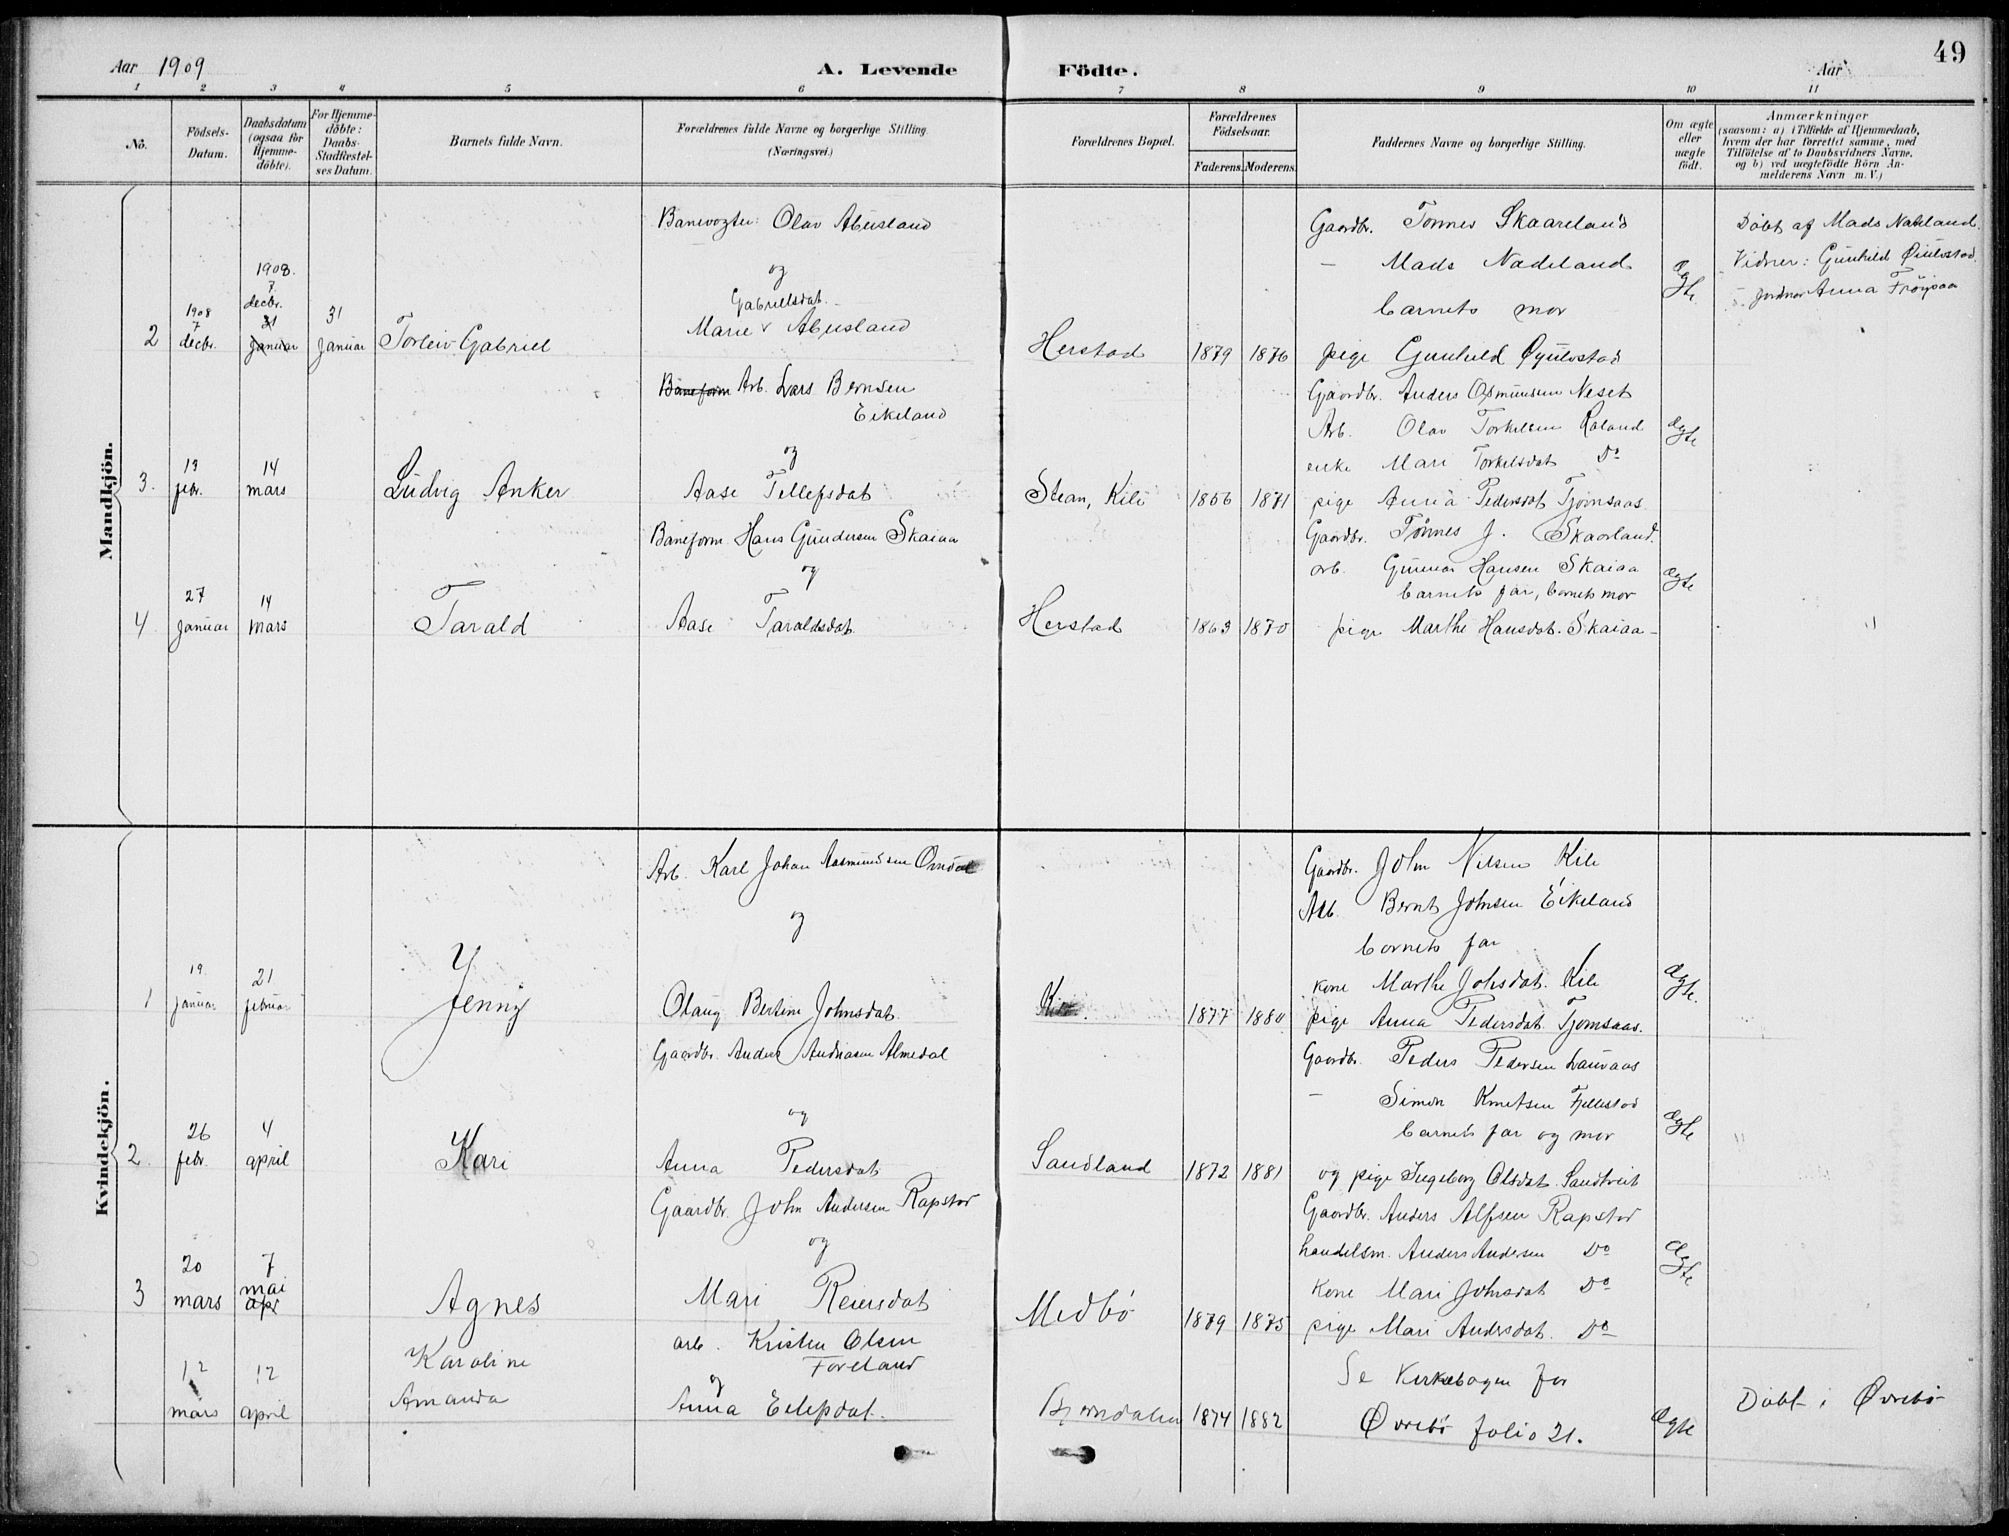 49
Aar 1909
A. Levende Födte.
Aar
1 2 3 4 5 6 7 8 9 10 11
No.
Födsels-Datum.
Daabsdatum (ogsaa for Hjemme-döbte).
For Hjemme-döbte: Daabs-Stadfæstel-ses Datum.
Barnets fulde Navn.
Forældrenes fulde Navne og borgerlige Stilling. (Næringsvei.)
Forældrenes Bopæl.
Forældrenes Födselsaar.
Faderens. Moderens.
Faddernes Navne og borgerlige Stilling.
Om ægte eller uægte födt.
Anmærkninger
(saasom: a) i Tilfælde af Hjemmedaab,
hvem der har forrettet samme, med
Tilföielse af to Daabsvidners Navne,
og b) ved uægtefödte Börn An-
melderens Navn m. V.)
Mandkjön.
Banevogter: Olav Abusland
og
Gabrielsdat.
Marie v Abusland
2
1908
7
decbr.
1908.
7
decbr.
31
Januar
31
Januar
Torleiv Gabriel
Herstad
1879 1876
Gaardbr. Tønnes Skaareland
— Mads Nadeland
barnets mor
pige Gunhild Øiulvstad
ægte
Døbt af Mads Nadeland.
Vidner: Gunhild Øiulvstad.
Jordmor Anna Frøysaa
Baneform Arb. Lars Berntsen
Eikeland
og
Aase Tellefsdat
3.
13
febr.
14
mars
Ludvig Anker
Stean, Kile
1856 1871
Gaardbr. Anders Osmundsen Neset
Arb. Olav Torkelsen Røland
enke Mari Torkelsdat Do
pige Anna Pedersdat Tjomsaas
ægte
Baneform Hans Gundersen Skaiaa
og
Aase Taraldsdat
4.
27
Januar
14
mars
Tarald
Herstad
1863 1870
Gaardbr. Tønnes J. Skaarland.
arb. Gunnar Hansen Skaiaa
barnets far, barnets mor
pige Marthe Hansdat. Skaiaa
ægte
Kvindekjön.
Arb. Karl Johan Aasmundsen
og
Olaug Bertine Johnsdat.
1
19
Januar
21
februar
Jenny
Kile.
1877 1880
Gaardbr. John Nilsen Kile
Arb. Bernt Johnsen Eikeland
barnets far
kone Marthe Johsdat. Kile
pige Anna Pedersdat Tjomsaas.
ægte.
Gaardbr. Anders Andreasen Almedal
og
Anna Pedersdat
2.
26
febr.
4
april
Kari
Sandland
1872 1881
Gaardbr. Peders Pedersen Lauvaas
— Simon Knutsen Fjellestad
barnets far og mor
og pige Ingeborg Olsdat. Sandtveit
ægte
Gaardbr. John Andersen Rapstad
og
Mari Reiersdat
3
20
mars
7
mai
apr
Agnes
Medbø
1879 1875
Gaardbr. Anders Alfsen Rapstad
handelsm. Anders Andersen Do
kone Mari Johnsdat Do
pige Mari Andersdat. Do
ægte
arb. Kristen Olsen
Føreland
og
Anna Eilefsdat.
12
mars
12
april
Karoline
Amanda
Bjørndalen
1874 1882
Se Kirkebogen for
Øvrebø folio 21.
ægte
Døbt i Øvrebø